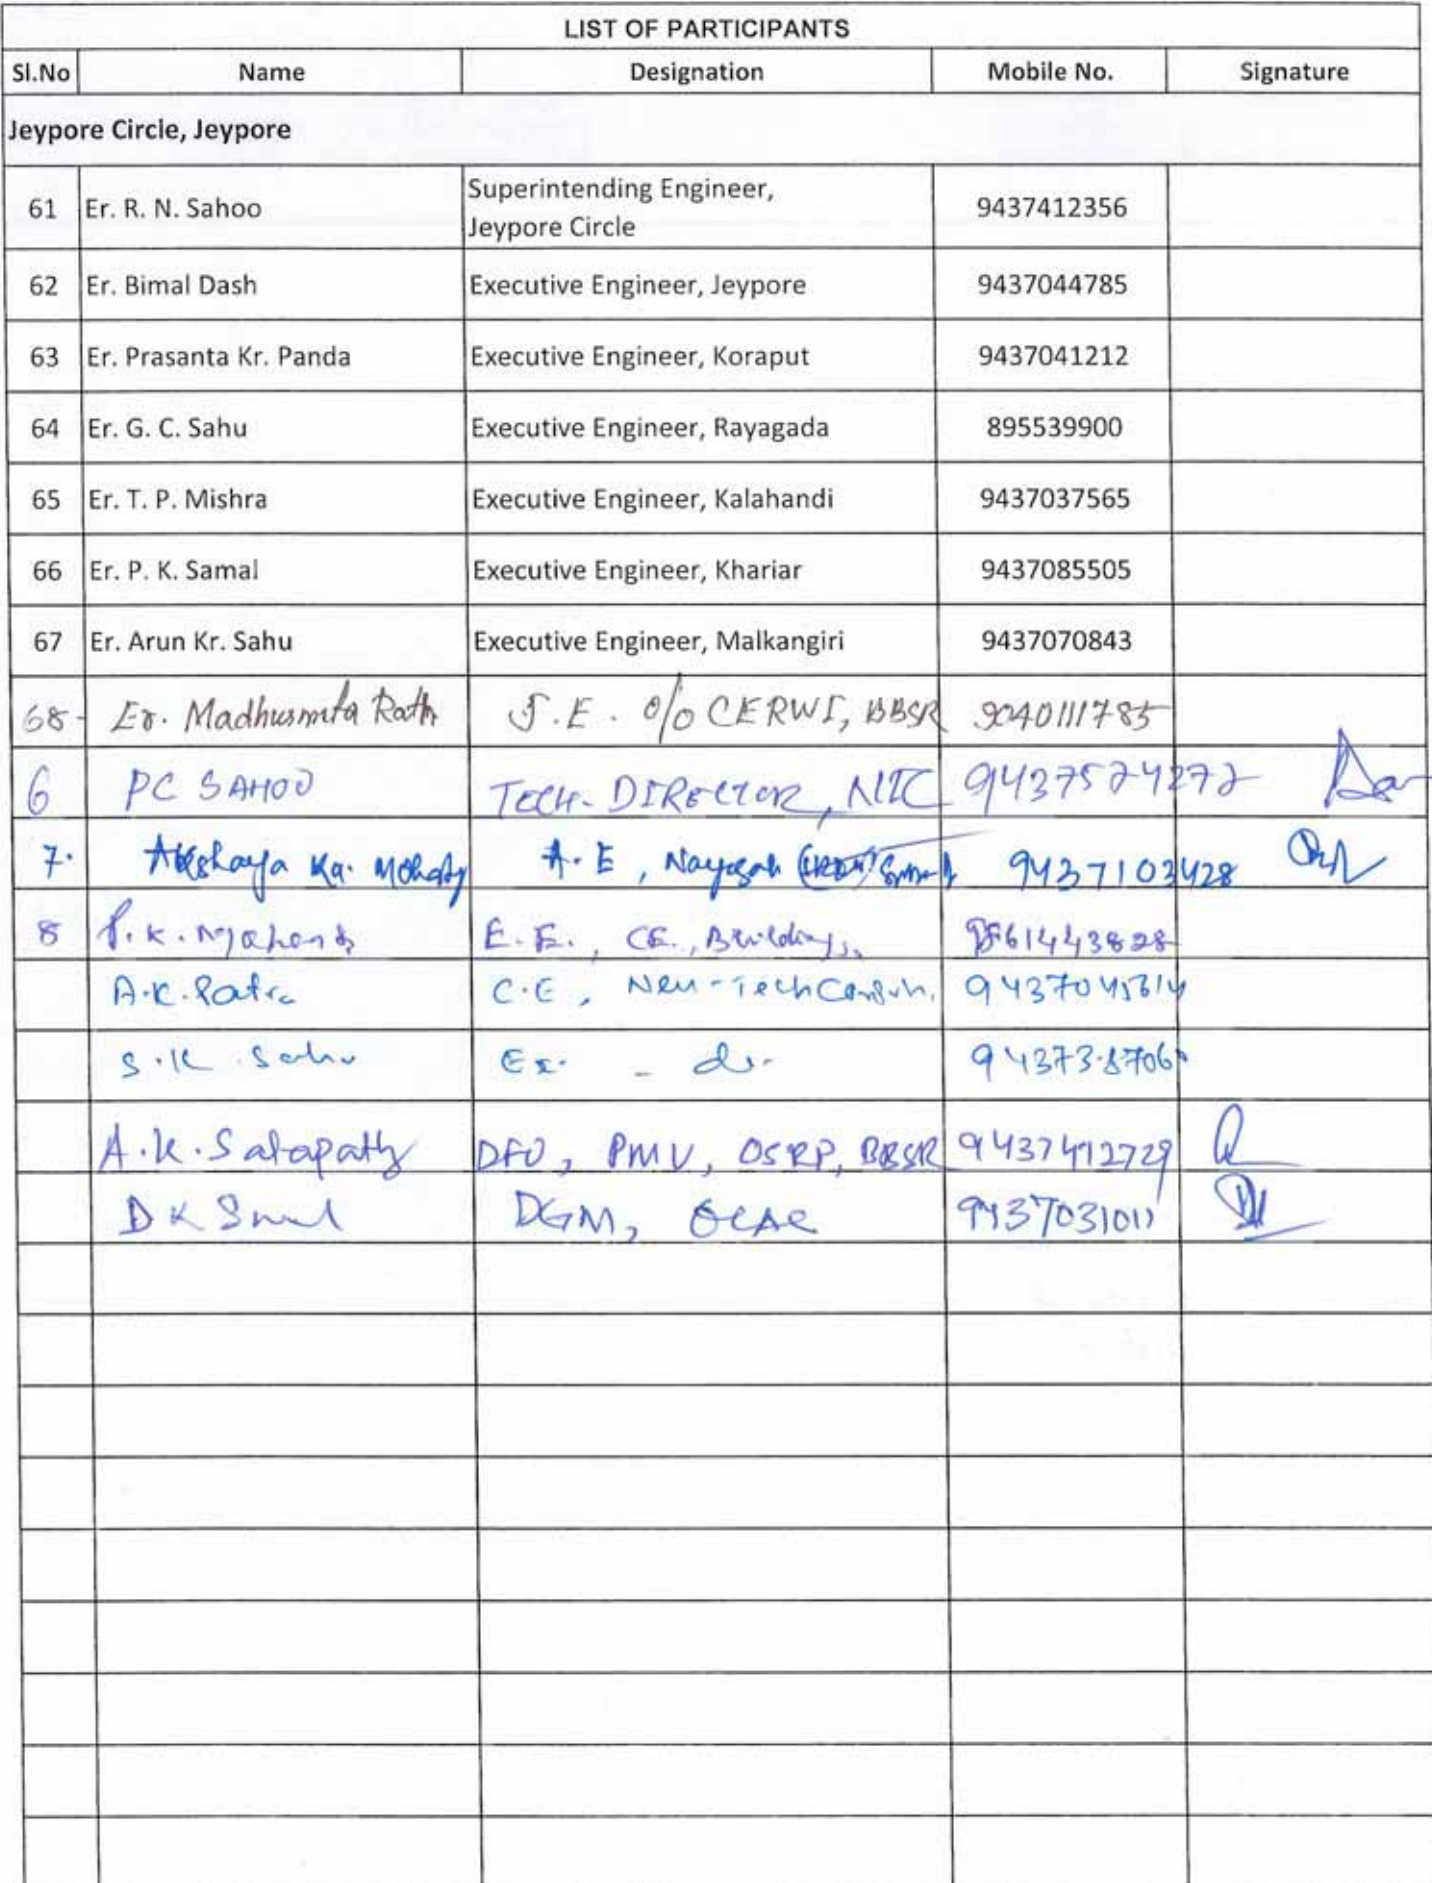 LIST OF PARTICIPANTS
Sl.No Name Designation Mobile No. Signature
Jeypore Circle, Jeypore
61 Er. R. N. Sahoo Superintending Engineer, Jeypore Circle 9437412356
62 Er. Bimal Dash Executive Engineer, Jeypore 9437044785
63 Er. Prasanta Kr. Panda Executive Engineer, Koraput 9437041212
64 Er. G. C. Sahu Executive Engineer, Rayagada 895539900
65 Er. T. P. Mishra Executive Engineer, Kalahandi 9437037565
66 Er. P. K. Samal Executive Engineer, Khariar 9437085505
67 Er. Arun Kr. Sahu Executive Engineer, Malkangiri 9437070843
68- Er. Madhusmita Rath J.E. O/o CERWI, BBSR 9040111785
6 PC SAHOO TECH. DIRECTOR, NIC
7. Akshaya Ka. Mohanty A.E, 9437103428
8 P.K. E.E., CE., Buildings,
A.K. Patra C.E, New-Tech
S.K. Sahu
A.K. Satapathy DFO, PMU, OSRP, BBSR 9437412729
D K DGM, OCAC